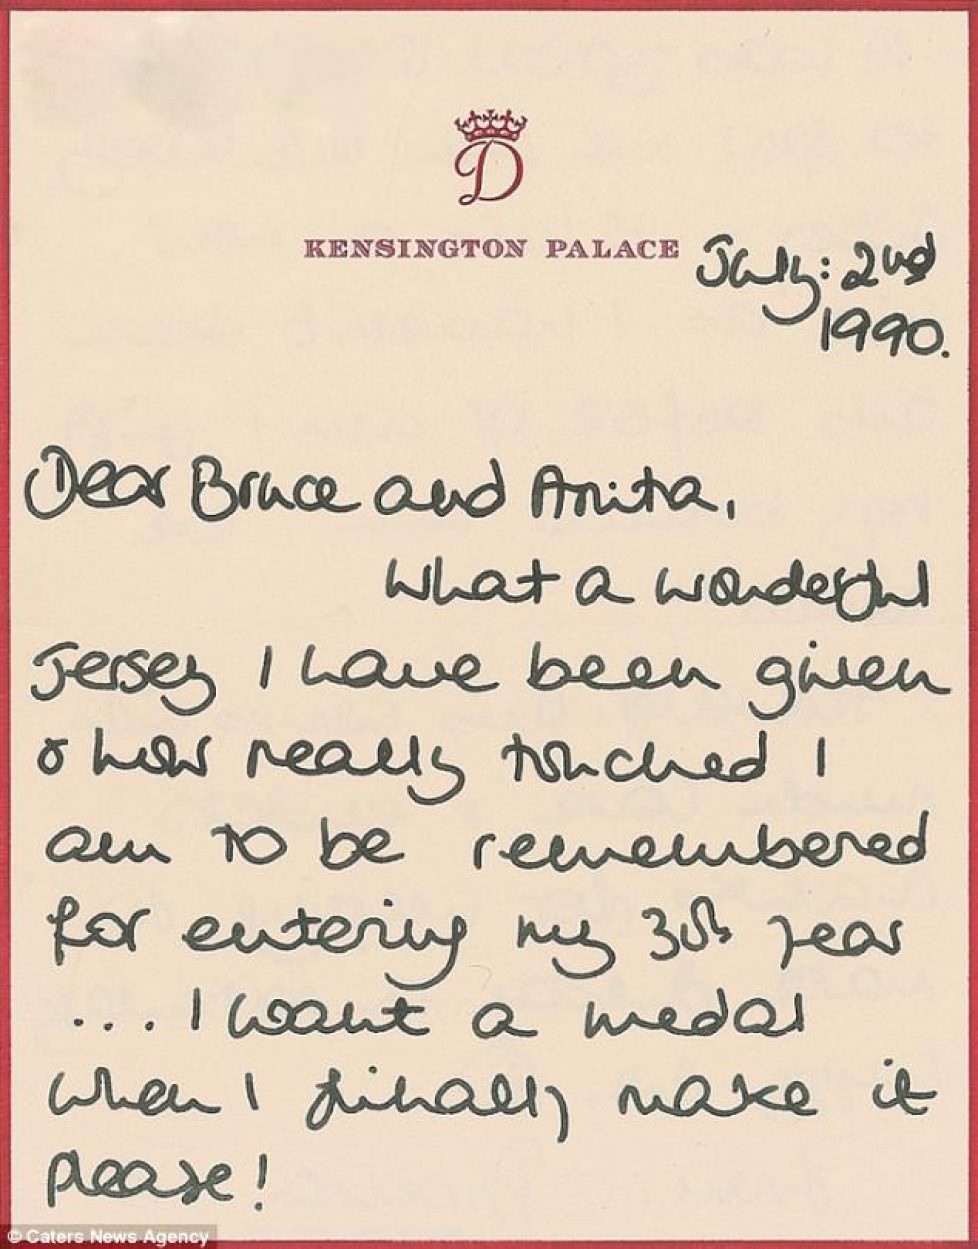 D
KENSINGTON PALACE
July: 2nd
1990.
Dear Bruce and Anita,
What a wonderful
Jersey I have been given
& how really touched I
am to be remembered
for entering my 30th year
... I want a medal
when I finally make it
please!
© Caters News Agency